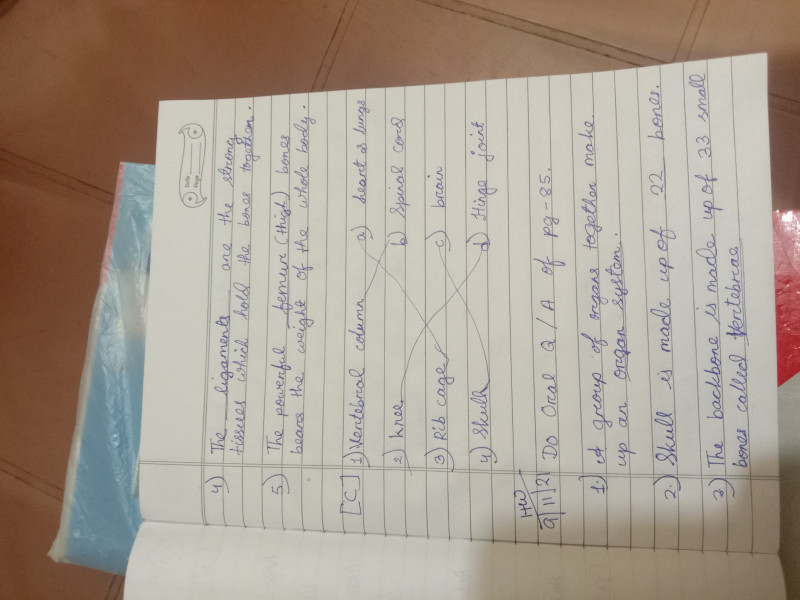 Date
Page
4) The ligaments are the strong
tissues which hold the bones together.
5) The powerful femur (thigh) bones
bears the weight of the whole body.
[C]
1) Vertebral column a) heart & lungs
2) knee b) Spinal cord
3) Rib cage c) brain
4) Skull d) Hinge joint
HW
9/11/21 Do Oral Q/A of pg-85.
1) A group of organs together make
up an organ system.
2) Skull is made up of 22 bones.
3) The backbone is made up of 33 small
bones called Vertebrae